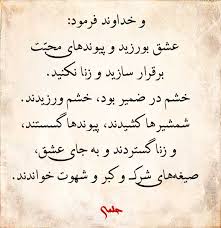 و خداوند فرمود:
عشق بورزید و پیوندهای محبّت
برقرار سازید و زنا نکنید.
خشم در ضمیر بود، خشم ورزیدند.
شمشیرها کشیدند، پیوندها گسستند،
و زنا گستردند و به جای عشق،
صیغه‌های شرک و کبر و شهوت خواندند.